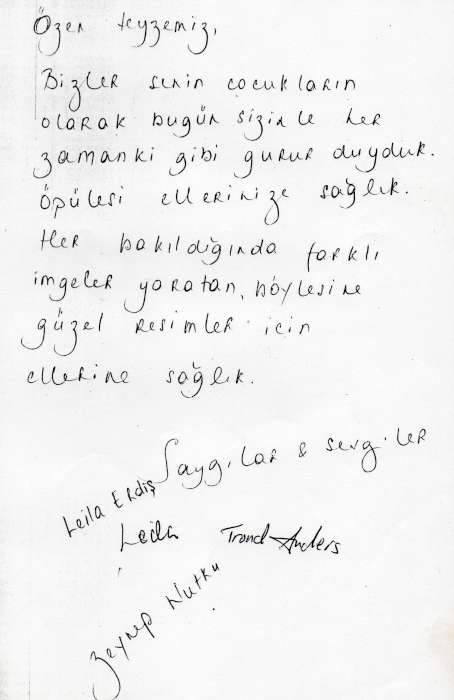 Özen teyzemiz,
Bizler senin çocukların
olarak bugün sizinle her
zamanki gibi gurur duyduk.
Öpülesi ellerinize sağlık.
Her bakıldığında farklı
imgeler yaratan, böylesine
güzel resimler için
ellerine sağlık.
Saygılar & sevgiler
Leila Erdiş
Leila Trond Anders
Zeynep Nutku